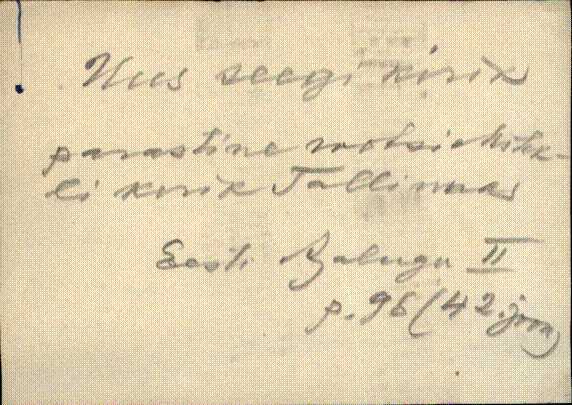 Uus seegi kirik
parastine rootsi Mihk-
li kirik Tallinnas
Eesti Ajalugu II
p. 96 (42. joon)